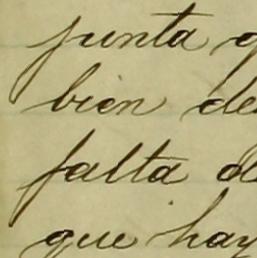 junta
bien de
falta d
que hay